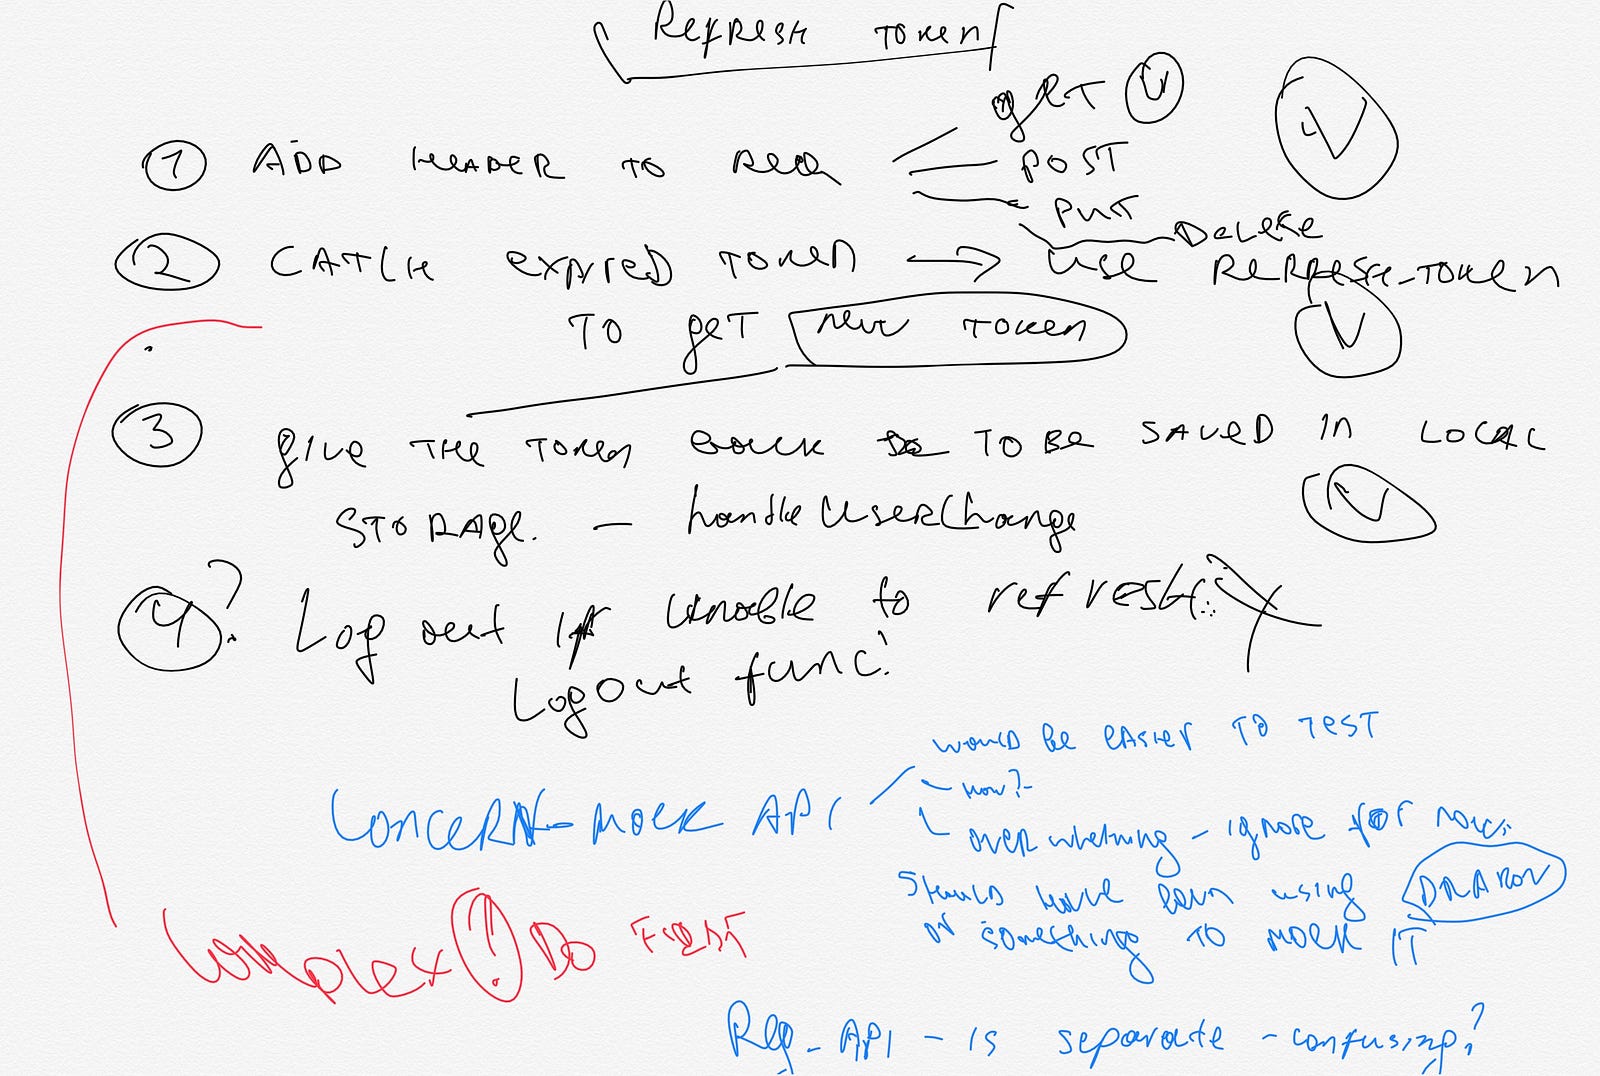 Refresh Token
GET V
① ADD HEADER TO REQ
POST
PUT
DELETE
V
② CATCH expired TOKEN → use REFRESH-TOKEN
TO get new TOKEN
V
③ give THE TOKEN back TO BE SAVED IN LOCAL
STORAGE. – handleUserChange
V
④? Log out if unable to refresh: X
LogOut func!
CONCERN - MOCK API
would be easier TO TEST
- how? -
overwhelming - ignore for now.
SHOULD have been using
or something TO MOCK IT
COMPLEX! DO FIRST
Req-API - is separate - confusing?